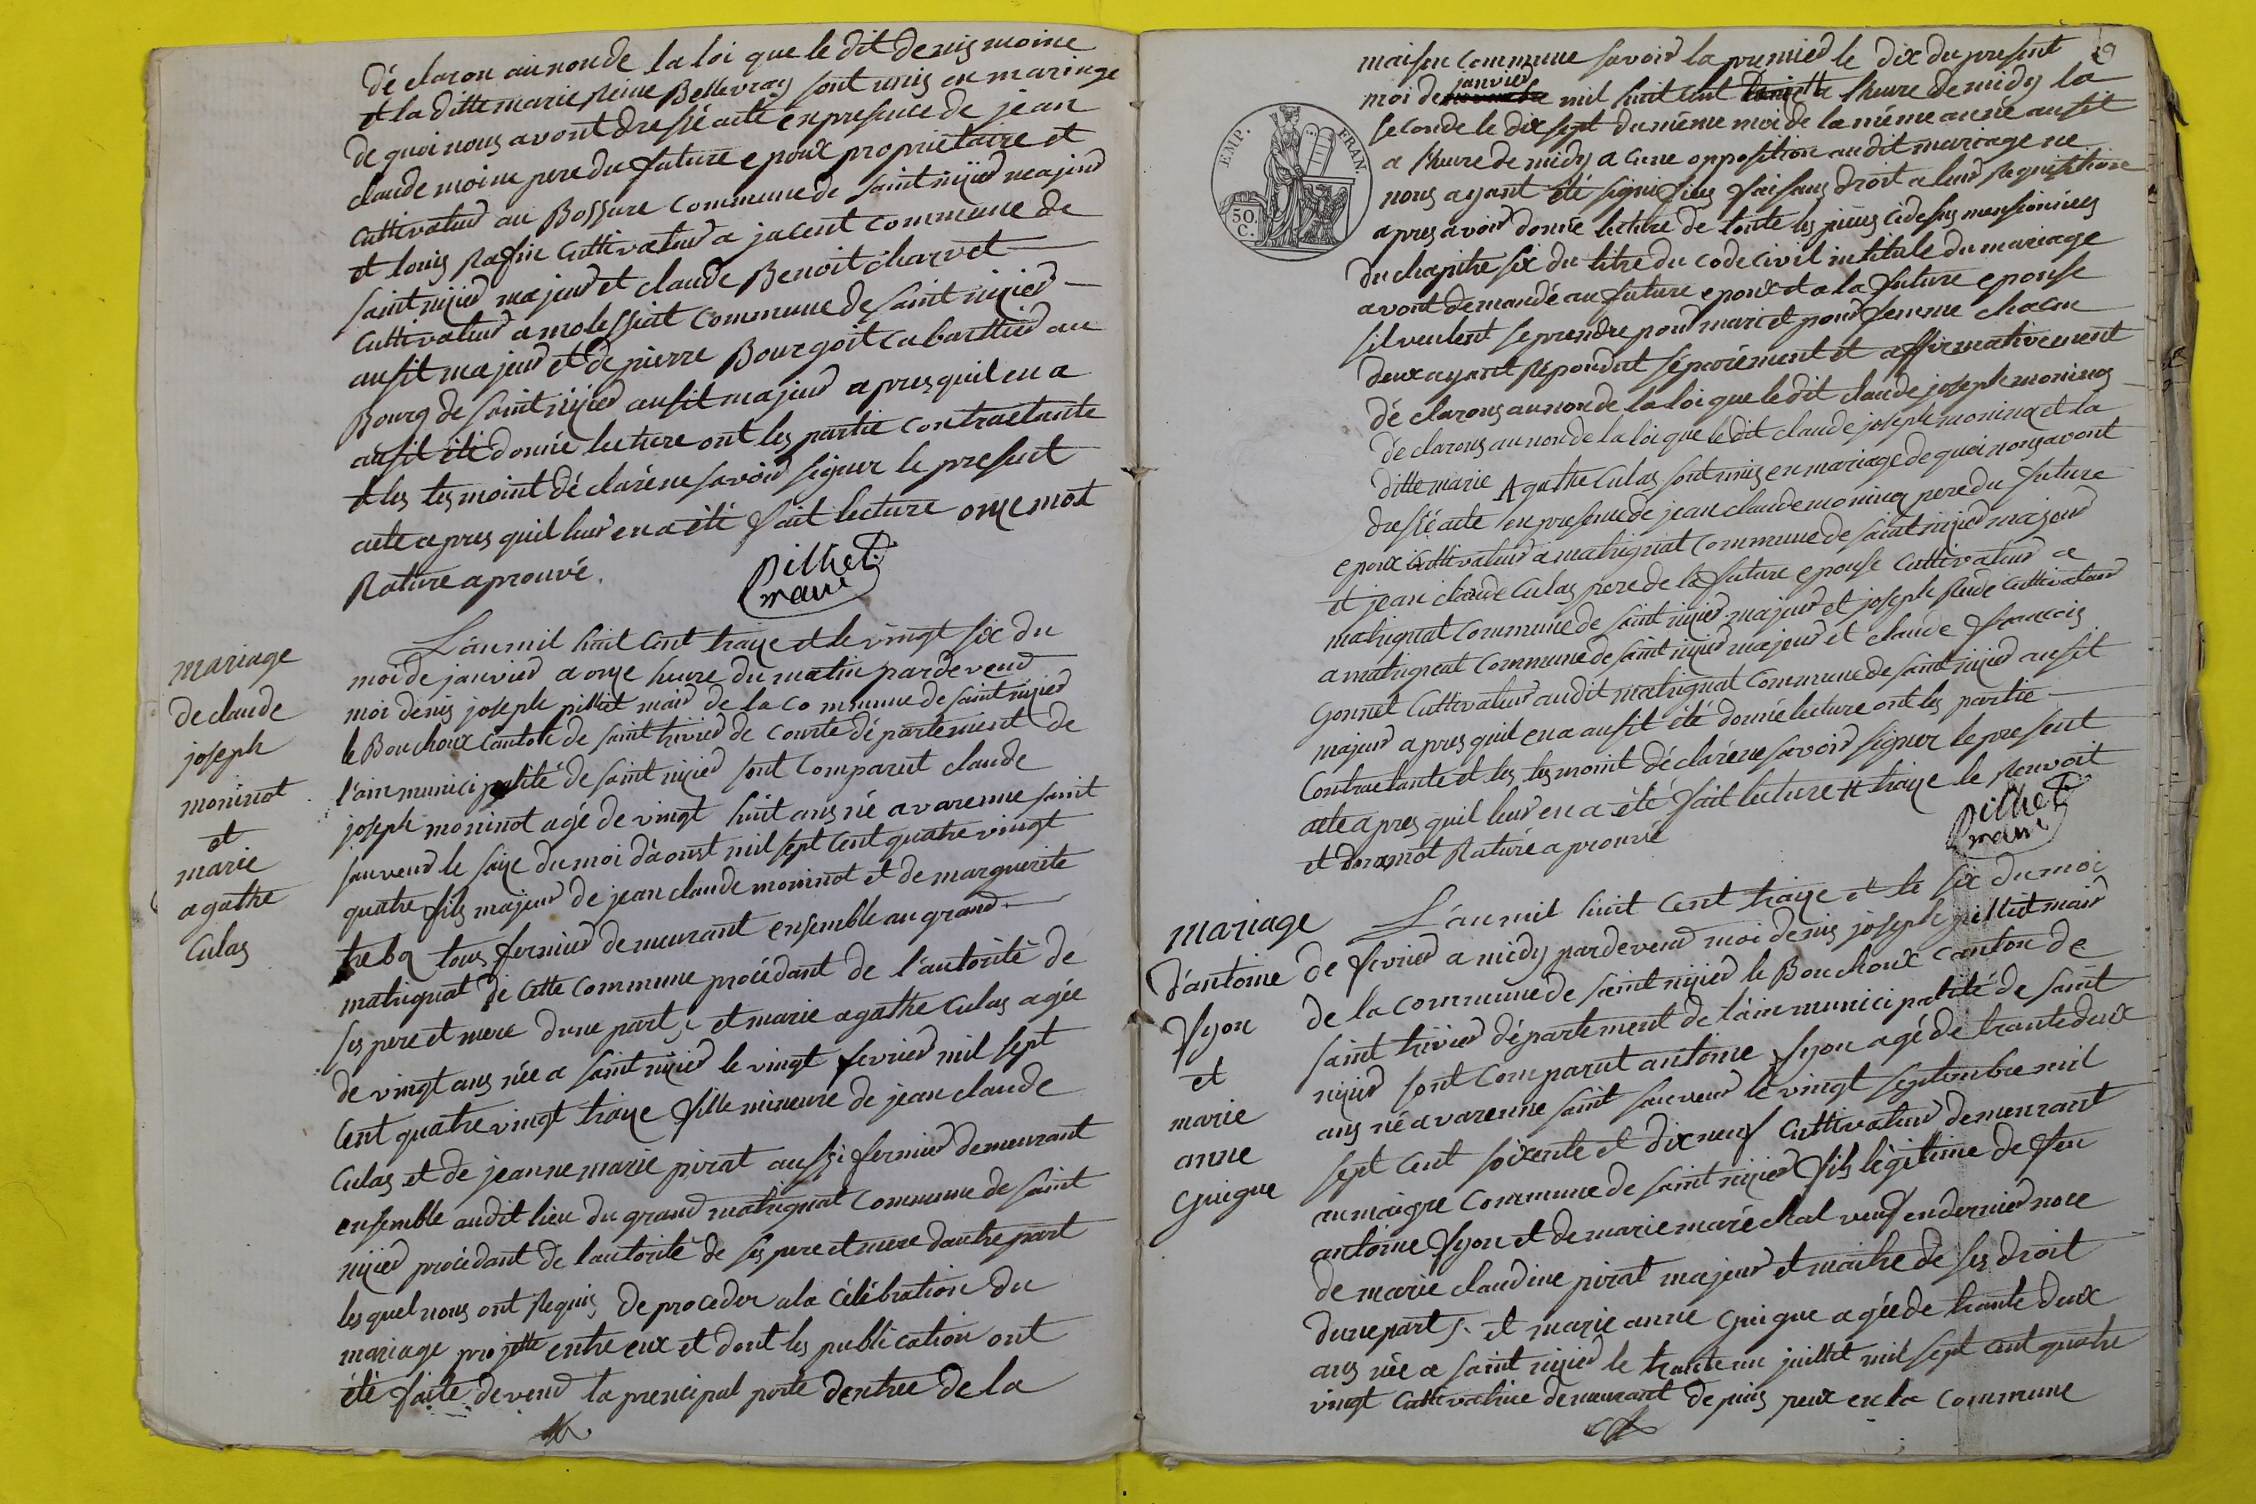 dé claron au non de la loi que le dit denis moine
et la ditte marie Reine Bellevray sont unis en mariage
de quoi nous avont dressé acte en presence de jean
claude moine pere du future epoux propriétaire et
cultivateur au Bossure commune de saint nizier majeur
et louis Rafin cultivateur a jacent commune de
saint nizier majeur et claude Benoit charvet
cultivateur a molessiat commune de saint nizier
ausit majeur et de pierre Bourgoit cabarttier au
Bourg de saint nizier ausit majeur apres quil en a
ausit été donnée lecture ont les partie contractante
et les tesmoint dé claré ne savoir signer le present
acte apres quil leur en a été fait lecture onze mot
Rature aprouvé.
Pillet
maire
mariage
de claude
joseph
moninot
et
marie
agathe
Culas
L'an mil huit cent traize et le vingt six du
moi de janvier a onze heure du matin pardevend
moi denis joseph pillet mair de la commune de saint nizier
le Bouchoux canton de saint trivier de courte département de
l'ain municipalité de saint nizier sont comparut claude
joseph moninot agé de vingt huit ans né a varenne saint
sauveur le saize du moi d'aoust mil sept cent quatre vingt
quatre fils majeur de jean claude moninot et de marguerite
treboz tous fermier demeurant ensemble au grand
matrignat de cette commune procédant de l'autorité de
ses pere et mere dune part, et marie agathe culas agée
de vingt ans née a saint nizier le vingt fevrier mil sept
cent quatre vingt traize fille mineure de jean claude
Culas et de jeanne marie pirat aussi fermier demeurant
ensemble audit lieu du grand matrignat commune de saint
nizier procédant de lautorité de ses pere et mere dautre part
les quel nous ont Requis de proceder a la célébration du
mariage projetté entre eux et dont les publication ont
été faite devend la principal porte dentree de la
maison commune savoir la premier le dix du present
moi de janvier mil huit cent traize a lheure de midy la
seconde le dix sept du même moi de la même anne ausit
a lheure de midy a cune opposition audit mariage ne
nous ayant été signifiée faisant droit a leur Requisitione
apres avoir donnée lecture de toute les pieces cidessus mensionnées
du chapitre six du titre du code civil intitule du mariage
avont demandé au future epoux et a la future epouse
sil veulent se prendre pour mari et pour femme chacun
deux ayant Repondut séparément et affirmativement
dé clarons au non de la loi que le dit claude joseph moninog
dé clarons au non de la loi que le dit claude joseph moninot et la
ditte marie Agathe Culas sont unis en mariage de quoi nous avont
dressé acte en presence de jean claude moninot pere du future
epoux cultivateur a matrignat commune de saint nizier majeur
et jean claude Culas pere de la future epouse cultivateur a
matrignat commune de saint nizier majeur et joseph Rude cultivateur
a matrignat commune de saint nizier majeur et claude francois
Gonnet cultivateur audit matrignat commune de saint nizier ausit
majeur apres quil en a ausit été donnée lecture ont les partie
Contractante et les tesmoint dé claré ne savoir signer le present
acte apres quil leur en a été fait lecture traize le Renvoit
et mot Raturé aprouvé
Pillet
maire
mariage
d'antoine
fyon
et
marie
anne
Guigue
L'an mil huit cent traize et le six du moi
de fevrier a midy pardevend moi denis joseph pillet mair
de la commune de saint nizier le Bouchoux canton de
saint trivier département de lain municipalité de saint
nizier sont comparut antoine fyon agé de trante deux
ans né a varenne saint sauveur le vingt septembre mil
sept cent soixente et dix neuf cultivateur demeurant
au maigre commune de saint nizier fils légitime de feu
antoine fyon et de marie maréchal veuf en dernier noce
de marie claudine pirat majeur et maitre de ses droit
dune part, et marie anne Guigue agée de trante deux
ans née a saint nizier le trante un juillet mil sept cent quatre
vingt cultivatrice demeurant depuis peux en la commune
EMP. FRAN.
50.
C.